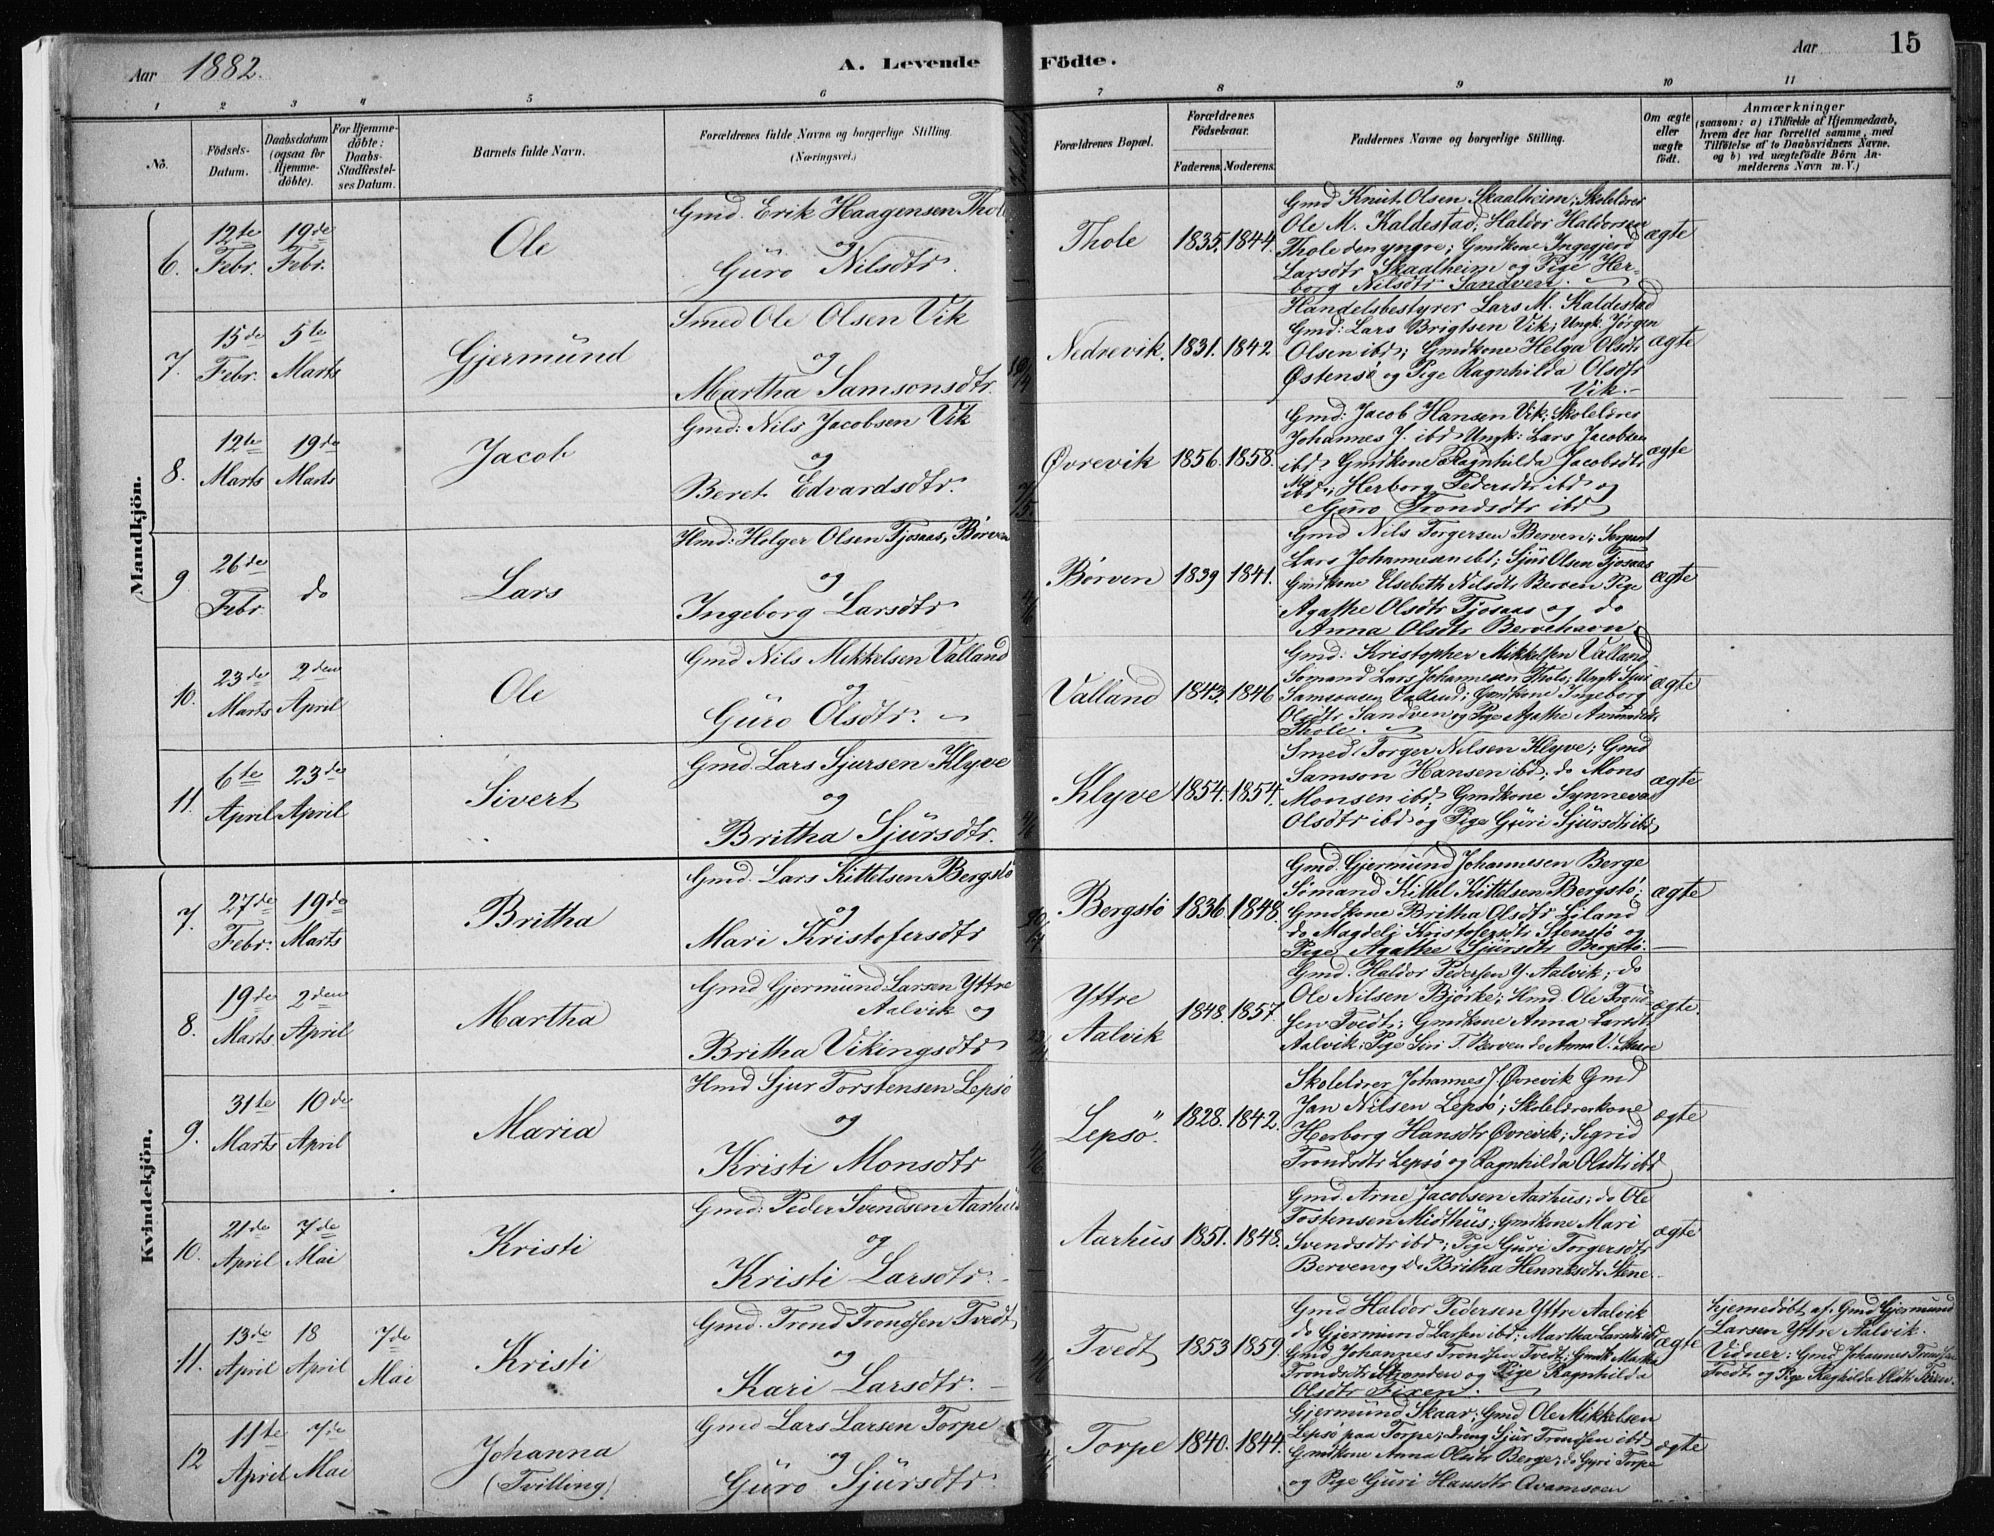 Aar 1882.
A. Levende Födte.
Aar
15
1 2 3 4 5 6 7 8 9 10 11
No.
Födsels-Datum.
Daabsdatum (ogsaa for Hjemme-döbte).
For Hjemme-döbte: Daabs-Stadfæstel-ses Datum.
Barnets fulde Navn.
Forældrenes fulde Navne og borgerlige Stilling. (Næringsvei.)
Forældrenes Bopæl.
Forældrenes Födselsaar.
Faderens. Moderens.
Faddernes Navne og borgerlige Stilling.
Om ægte eller uægte født.
Anmærkninger
(saasom: a) i Tilfælde af Hjemmedaab,
hvem der har forrettet samme, med
Tilföielse af to Daabsvidners Navne,
og b) ved uægtefödte Börn An-
melderens Navn m.V.)
Mandkjön.
6.
12te Febr.
19de Febr.
Ole
Gmd. Erik Haagensen Thole
og
Guro Nilsdtr.
Thole
1835. 1844.
Gmd Knut Olsen Skaalheim; Skolelærer
Ole M. Kaldestad; Haldor Haldorsen
Thole den yngre; Gmdkone Ingegjerd
Larsdtr Skaalheim og Pige Her-
borg Nilsdtr Sandven.
ægte
7.
15de Febr.
5te Marts
Gjermund
Smed Ole Olsen Vik
og
Martha Samsonsdtr.
Nedrevik.
1831. 1842
Handelsbestyrer Lars M. Kaldestad
Gmd: Lars Brigtsen Vik; Ungk. Jørgen
Olsen ibd; Gmdkone Helga Olsdtr
Østensø og Pige Ragnhilda Olsdtr
Vik.
ægte
8.
12te Marts
19de Marts
Jacob
Gmd: Nils Jacobsen Vik
og
Beret Edvardsdtr.
Øvrevik
1856. 1858.
Gmd: Jacob Hansen Vik; Skolelærer
Johannes J. ibd Ungk: Lars Jacobsen
ibd. Gmdkone Ragnhilda Jacobsdtr
ibd; Herborg Pedersdtr ibd og
Guro Trondsdtr ibd
ægte
9
26de Febr.
do
Lars
Hmd: Holger Olsen Tjosaas, Børven
og
Ingeborg Larsdtr
Børven
1839 1841.
Gmd Nils Torgersen Berven; Sergeant
Lars Johannesen ibd; Sjur Olsen Tjosaas
Gmdkone Elsebeth Nilsdtr Berven Pige
Agathe Olsdtr Tjosaas og do
Anna Olsdtr Bervehavn
ægte
10.
23de Marts
2den April
Ole
Gmd Nils Mikkelsen Valland
og
Guro Olsdtr.
Valland
1843. 1846
Gmd: Kristopher Mikkelsen Valland
Sømand Lars Johannesen Thole; Ungk Sjur
Samsonsen Valland; Gmdkone Ingeborg
Olsdtr Sandven og Pige Agathe Amundsdtr
Thole.
ægte
11.
6te April
23de April
Sivert
Gmd. Lars Sjursen Klyve
og
Britha Sjursdtr.
Klyve
1854. 1854.
Smed Torger Nilsen Klyve; Gmd
Samson Hansen ibd; do Mons
Monsen ibd; Gmdkone Synneva
Olsdtr ibd og Pige Guri Sjursdtr ibd
ægte
Kvindekjön.
7.
27de Febr.
19de Marts
Britha
Gmd. Lars Kittelsen Bergstø
og
Mari Kristofersdtr
Bergstø
1836 1848.
Gmd. Gjermund Johannesen Berge
Sømand Kittel Kittelsen Bergstø;
Gmdkone Britha Olsdtr Liland
do Magdeli Kristofersdtr Stensø og
Pige Agathe Sjursdtr Bergstø.
ægte
8.
19de Marts
2den April
Martha
Gmd Gjermund Larsen Yttre
Aalvik og
Britha Vikingsdtr
Yttre Aalvik
1848. 1857.
Gmd. Haldor Pedersen Y. Aalvik; do
Ole Nilsen Bjørke; Hmd. Ole Trond-
sen Tvedt; Gmdkone Anna Larsdtr
Aalvik; Pige Siri T. Berven do Anna V. Skaare
ægte.
9.
31te Marts
10de April
Maria
Hmd Sjur Torstensen Lepsø
og
Kristi Monsdtr
Lepsø.
1828. 1842.
Skolelærer Johannes J Øvrevik Gmd
Jan Nilsen Lepsø; Skolelærerkone
Herborg Hansdtr Øvrevik; Sigrid
Trondsdtr Lepsø og Ragnhilda Olsdtr ibd
ægte
10.
21de April
7de Mai
Kristi
Gmd: Peder Svendsen Aarhus
og
Kristi Larsdtr.
Aarhus
1851. 1848.
Gmd. Arne Jacobsen Aarhus; do Ole
Tostensen Midthus; Gmdkone Mari
Svendsdtr ibd; Pige Guri Torgersdtr
Berven og do Britha Henriksdtr Stene.
ægte
11.
13de April
18 April
7de Mai
Kristi
Gmd. Trond Trondsen Tvedt
og
Kari Larsdtr.
Tvedt
1853 1859.
Gmd Haldor Pedersen Yttre Aalvik
do Gjermund Larsen ibd; Martha Larsdtr ibd
Gmd Johannes Trondsen Tvedt; Gmdk Martha
Trondsdtr Stranden og Pige Ragnhilda
Olsdtr Fixen.
ægte
Hjemedøbt af Gmd Gjermund
Larsen Yttre Aalvik.
Vidner: Gmd Johannes Trondsen
Tvedt og Pige Raghilda Olsdtr Fixen.
12
11te April
7de Mai
Johanna
(Tvilling)
Gmd Lars Larsen Torpe
og
Guro Sjursdtr.
Torpe
1840. 1844.
Gjermund Skaar; Gmd Ole Mikkelsen
Lepsø paa Torpe; dreng Sjur Trondsen ibd
Gmdkone Anna Olsdtr Berge; do Gyri Torpe
og Pige Guri Hansdtr Avamsoen
ægte